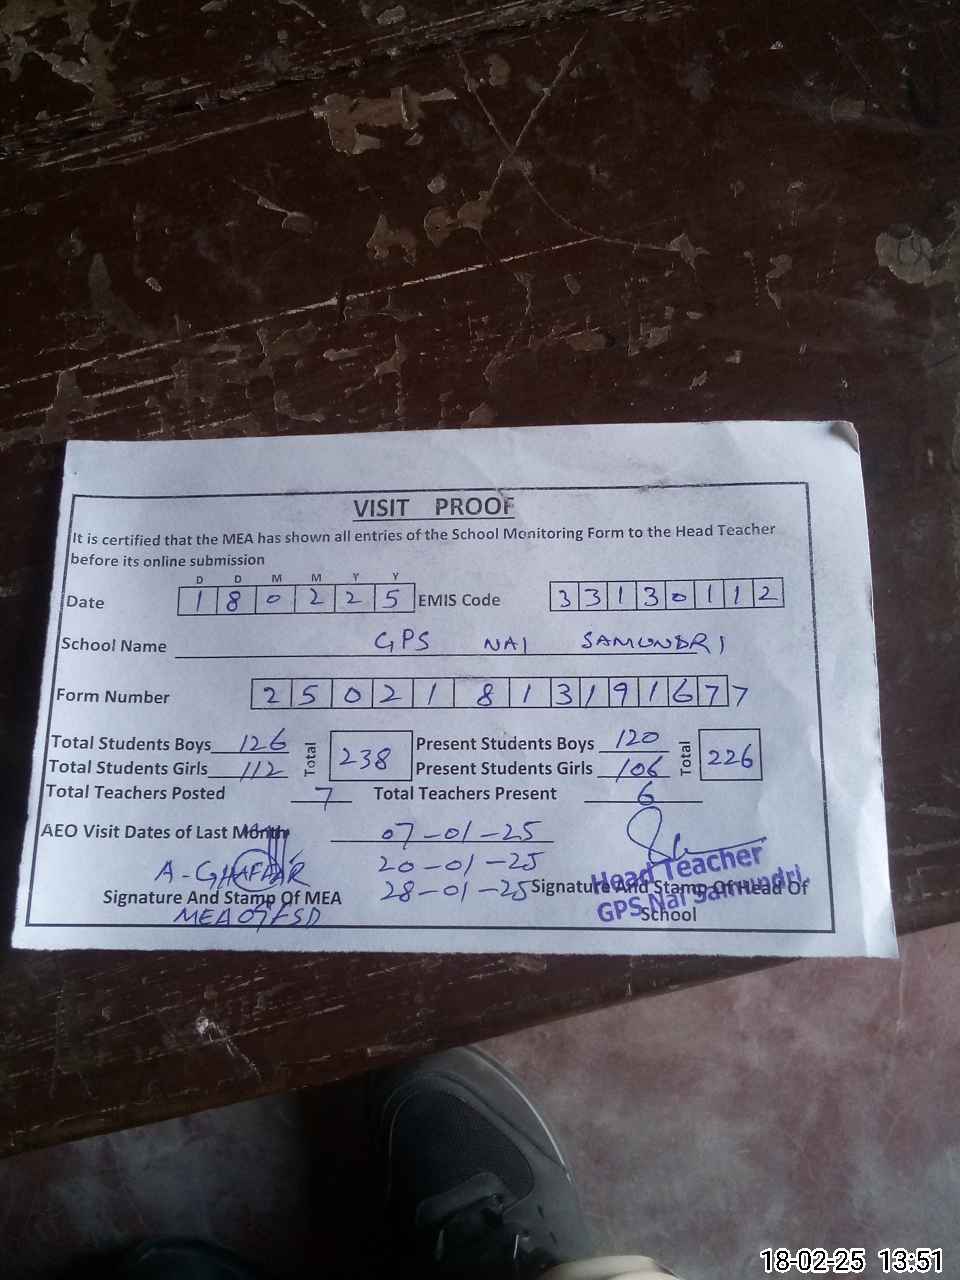 VISIT PROOF
It is certified that the MEA has shown all entries of the School Monitoring Form to the Head Teacher
before its online submission
D D M M Y Y
Date 1 8 0 2 2 5 EMIS Code 3 3 1 3 0 1 1 2
School Name GPS NAI SAMUNDRI
Form Number 2 5 0 2 1 8 1 3 1 9 1 6 7 7
Total Students Boys 126 Total 238 Present Students Boys 120 Total 226
Total Students Girls 112 Present Students Girls 106
Total Teachers Posted 7 Total Teachers Present 6
AEO Visit Dates of Last Month 07-01-25
20-01-25
28-01-25
A-GHAFFAR
Signature And Stamp Of MEA
MEA 07 FSD
Head Teacher
GPS Nai Samundri
Signature And Stamp Of Head Of
School
18-02-25 13:51